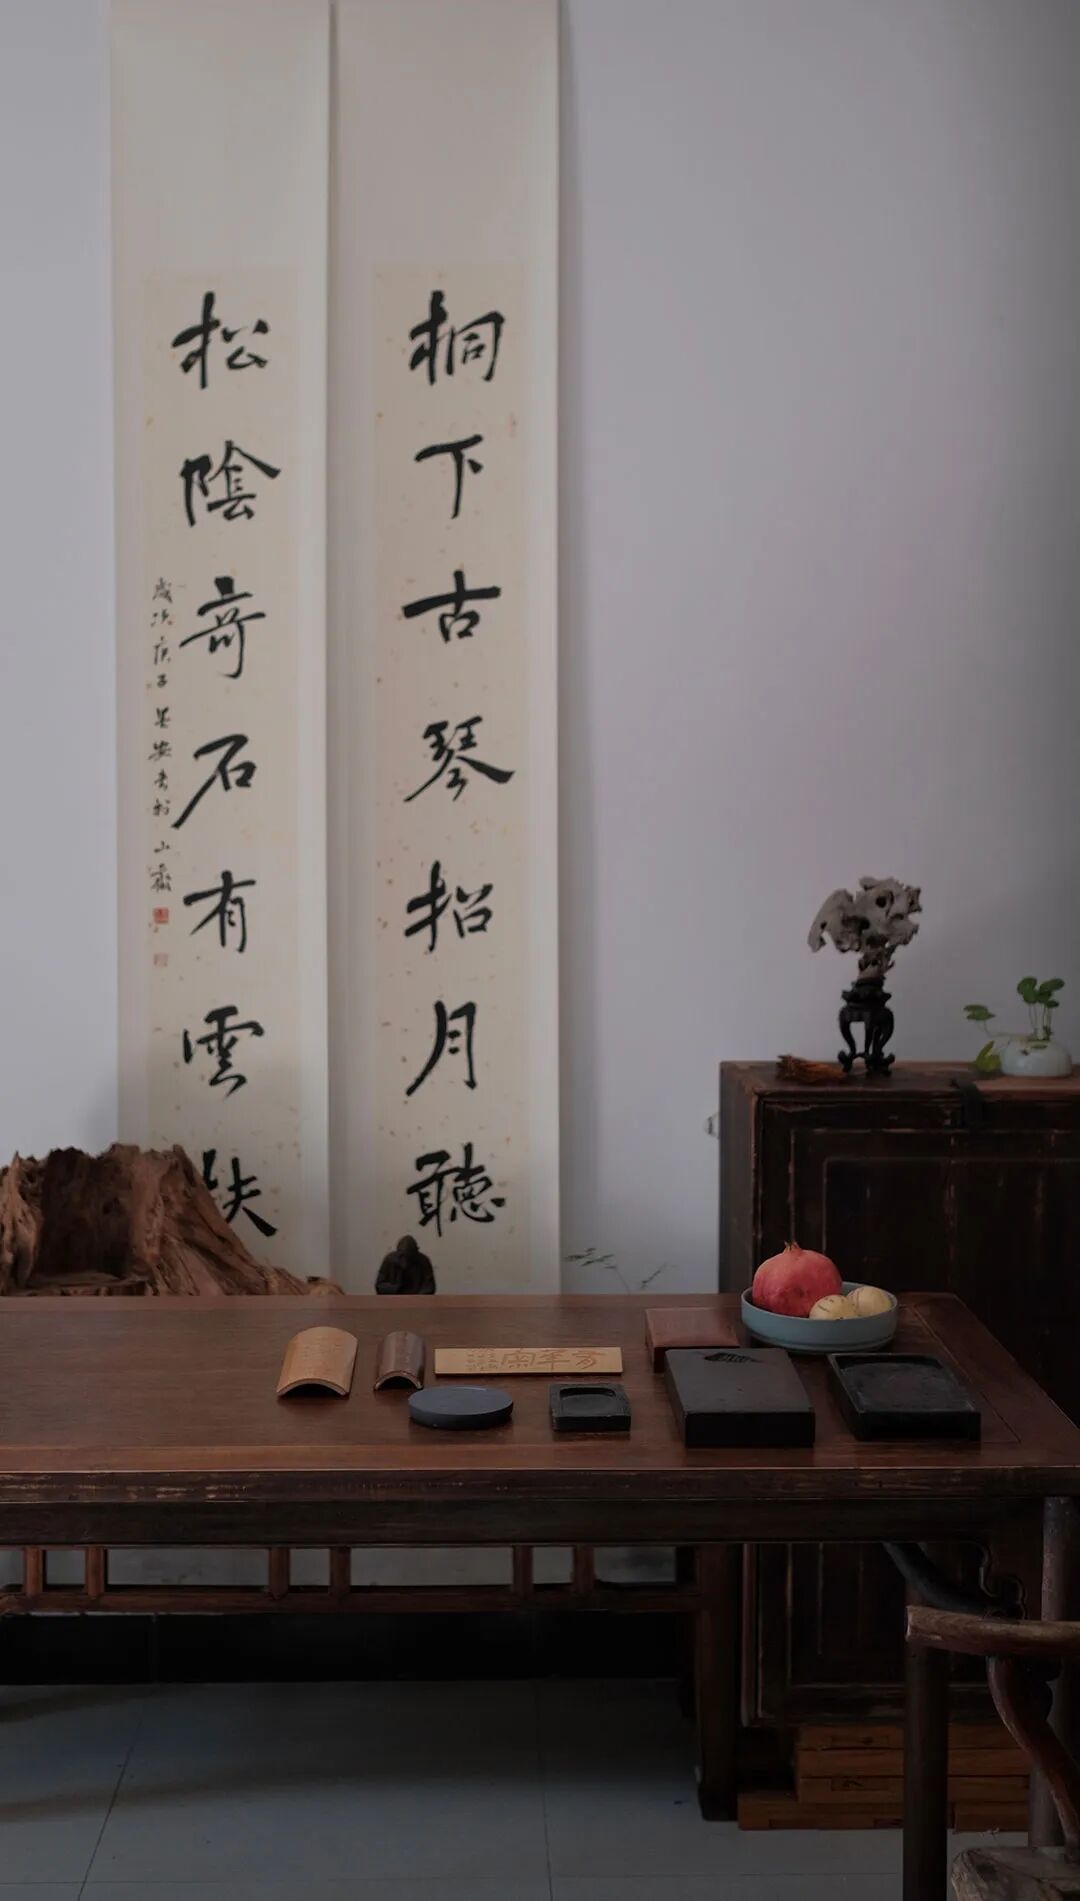 桐下古琴招月聽
松陰奇石有雲
歲次庚子
山齋